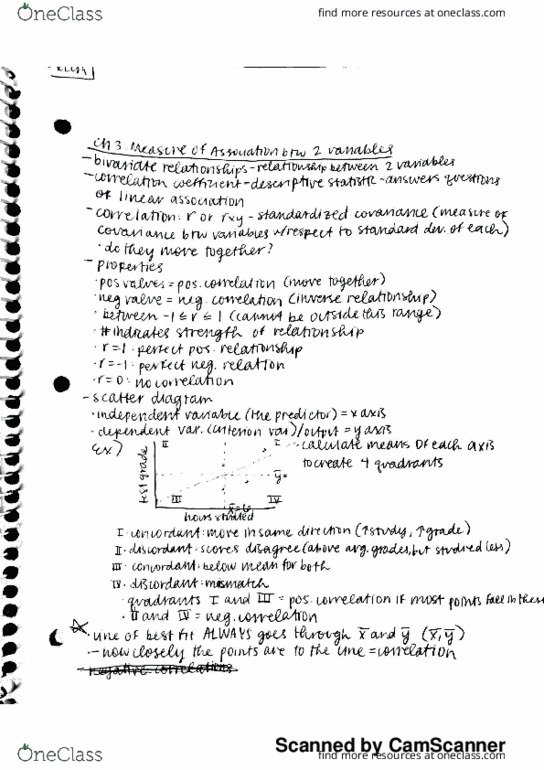 OneClass
find more resources at oneclass.com
Ch 3. Measure of Association btw 2 variables
- bivariate relationships - relationship between 2 variables
- correlation coefficient - descriptive statistic - answers questions
of linear association
- correlation: r or rxy - standardized covariance (measure of
covariance btw variables w/respect to standard dev. of each)
· do they move together?
- properties
· pos values = pos. correlation (move together)
· neg value = neg. correlation (inverse relationship)
· between -1 ≤ r ≤ 1 (cannot be outside this range)
· # indicates strength of relationship
· r=1 · perfect pos. relationship
· r=-1 · perfect neg. relation
· r=0 · no correlation
- scatter diagram
· independent variable (the predictor) = x axis
· dependent var. (criterion var)/output = y axis
ex) II I - calculate means of each axis
to create 4 quadrants
test grade
ȳ=
III IV
x̄=6
hours studied
I · concordant: move in same direction (↑study, ↑grade)
II · discordant · scores disagree (above avg. grades, but studied less)
III · concordant: below mean for both
IV · discordant: mismatch
· quadrants I and III = pos. correlation if most points fall in these
· II and IV = neg. correlation
· line of best fit ALWAYS goes through x̄ and ȳ (x̄, ȳ)
- how closely the points are to the line = correlation
negative correlations
Scanned by CamScanner
OneClass
find more resources at oneclass.com